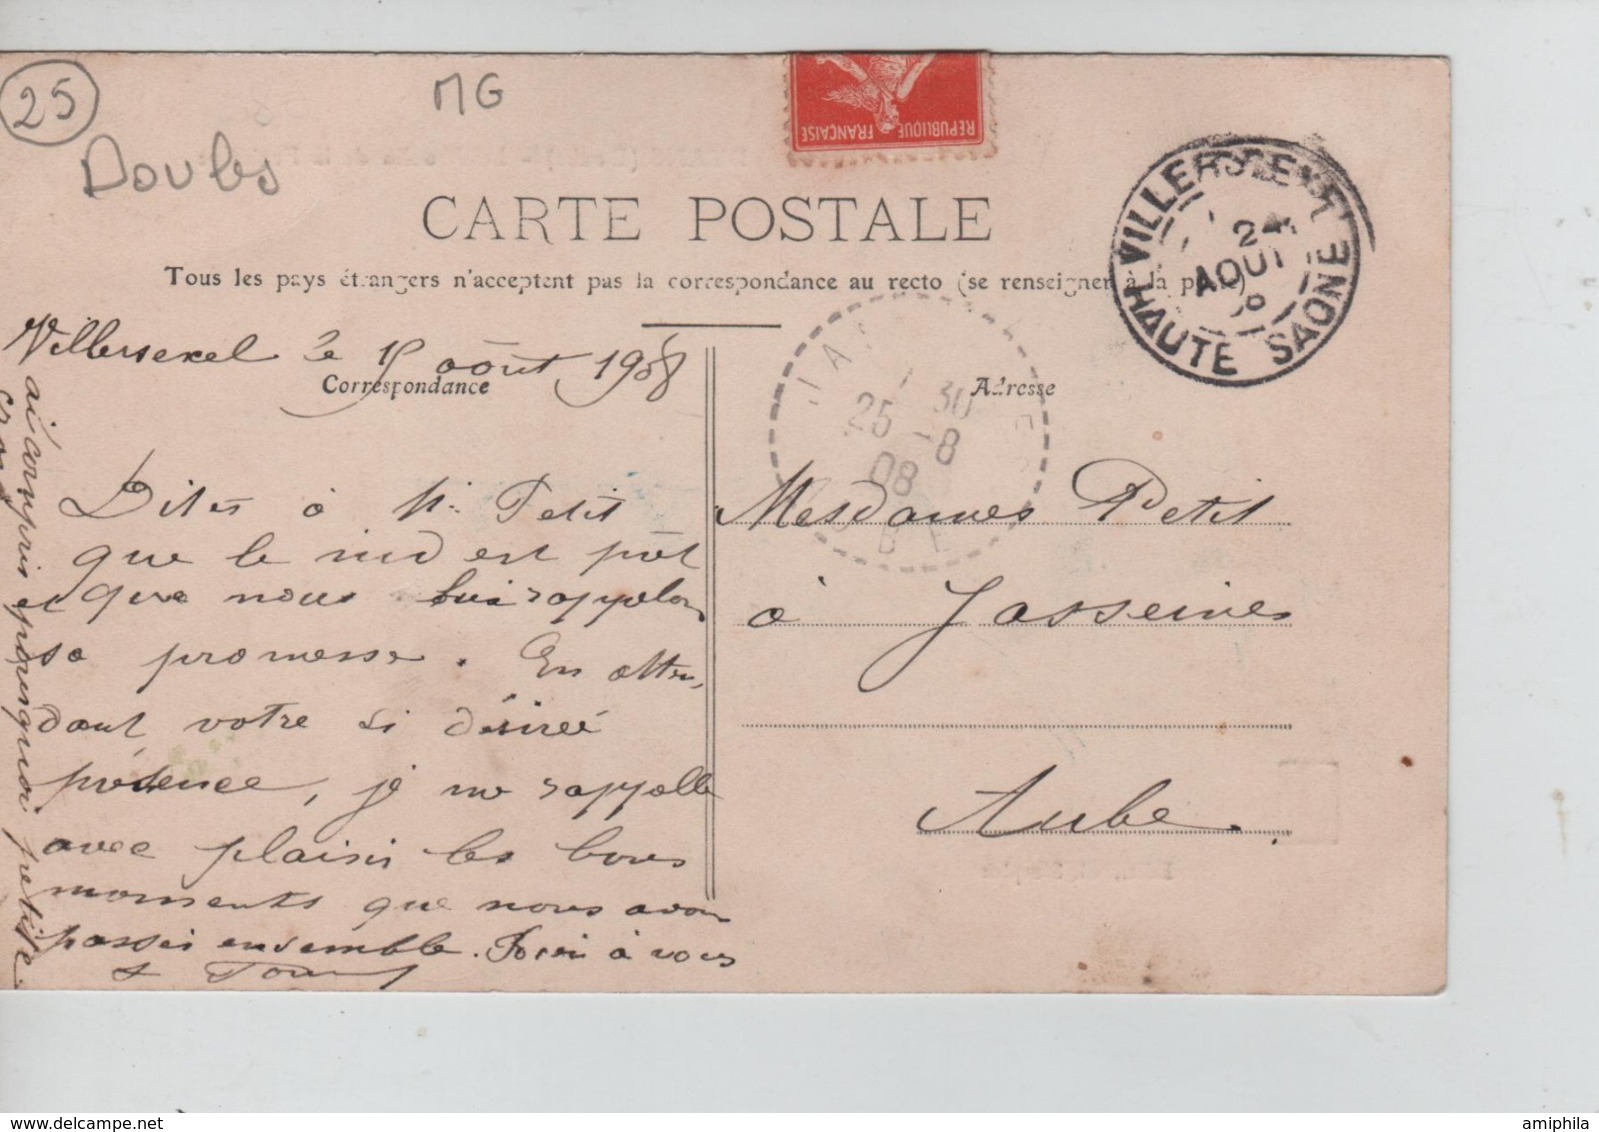 25
MG
Doubs
REPUBLIQUE FRANÇAISE
CARTE POSTALE
Tous les pays étrangers n'acceptent pas la correspondance au recto (se renseigner à la poste)
VILLERSEXEL
24
AOUT
8
HAUTE SAONE
Villersexel le août 1908
Correspondance
Adresse
30
25 -8
08
Dites à Mr Petit
que le nid est prêt
et que nous lui rappelons
sa promesse. En atten-
dant votre si désirée
présence, je me rappelle
avec plaisir les bons
moments que nous avons
passés ensemble. à vous
ai compris pourquoi petite
Mesdames Petit
à Jasseines
Aube.
amiphila